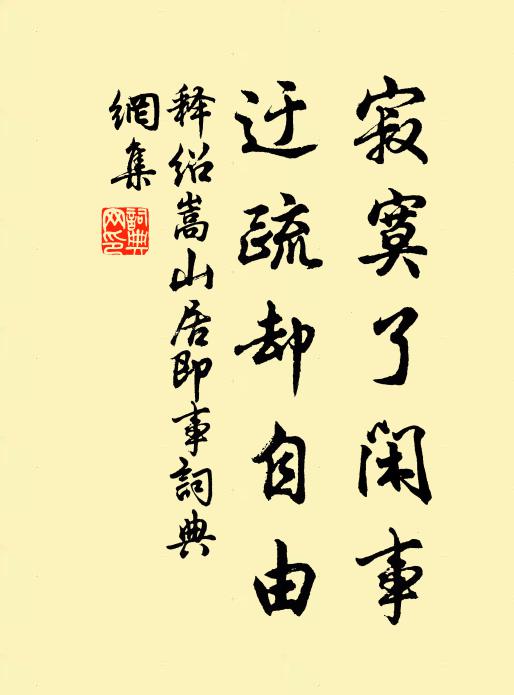 寂寞了闲事
迂疏却自由
释绍嵩山居即事詞典
網集
詞典
网印